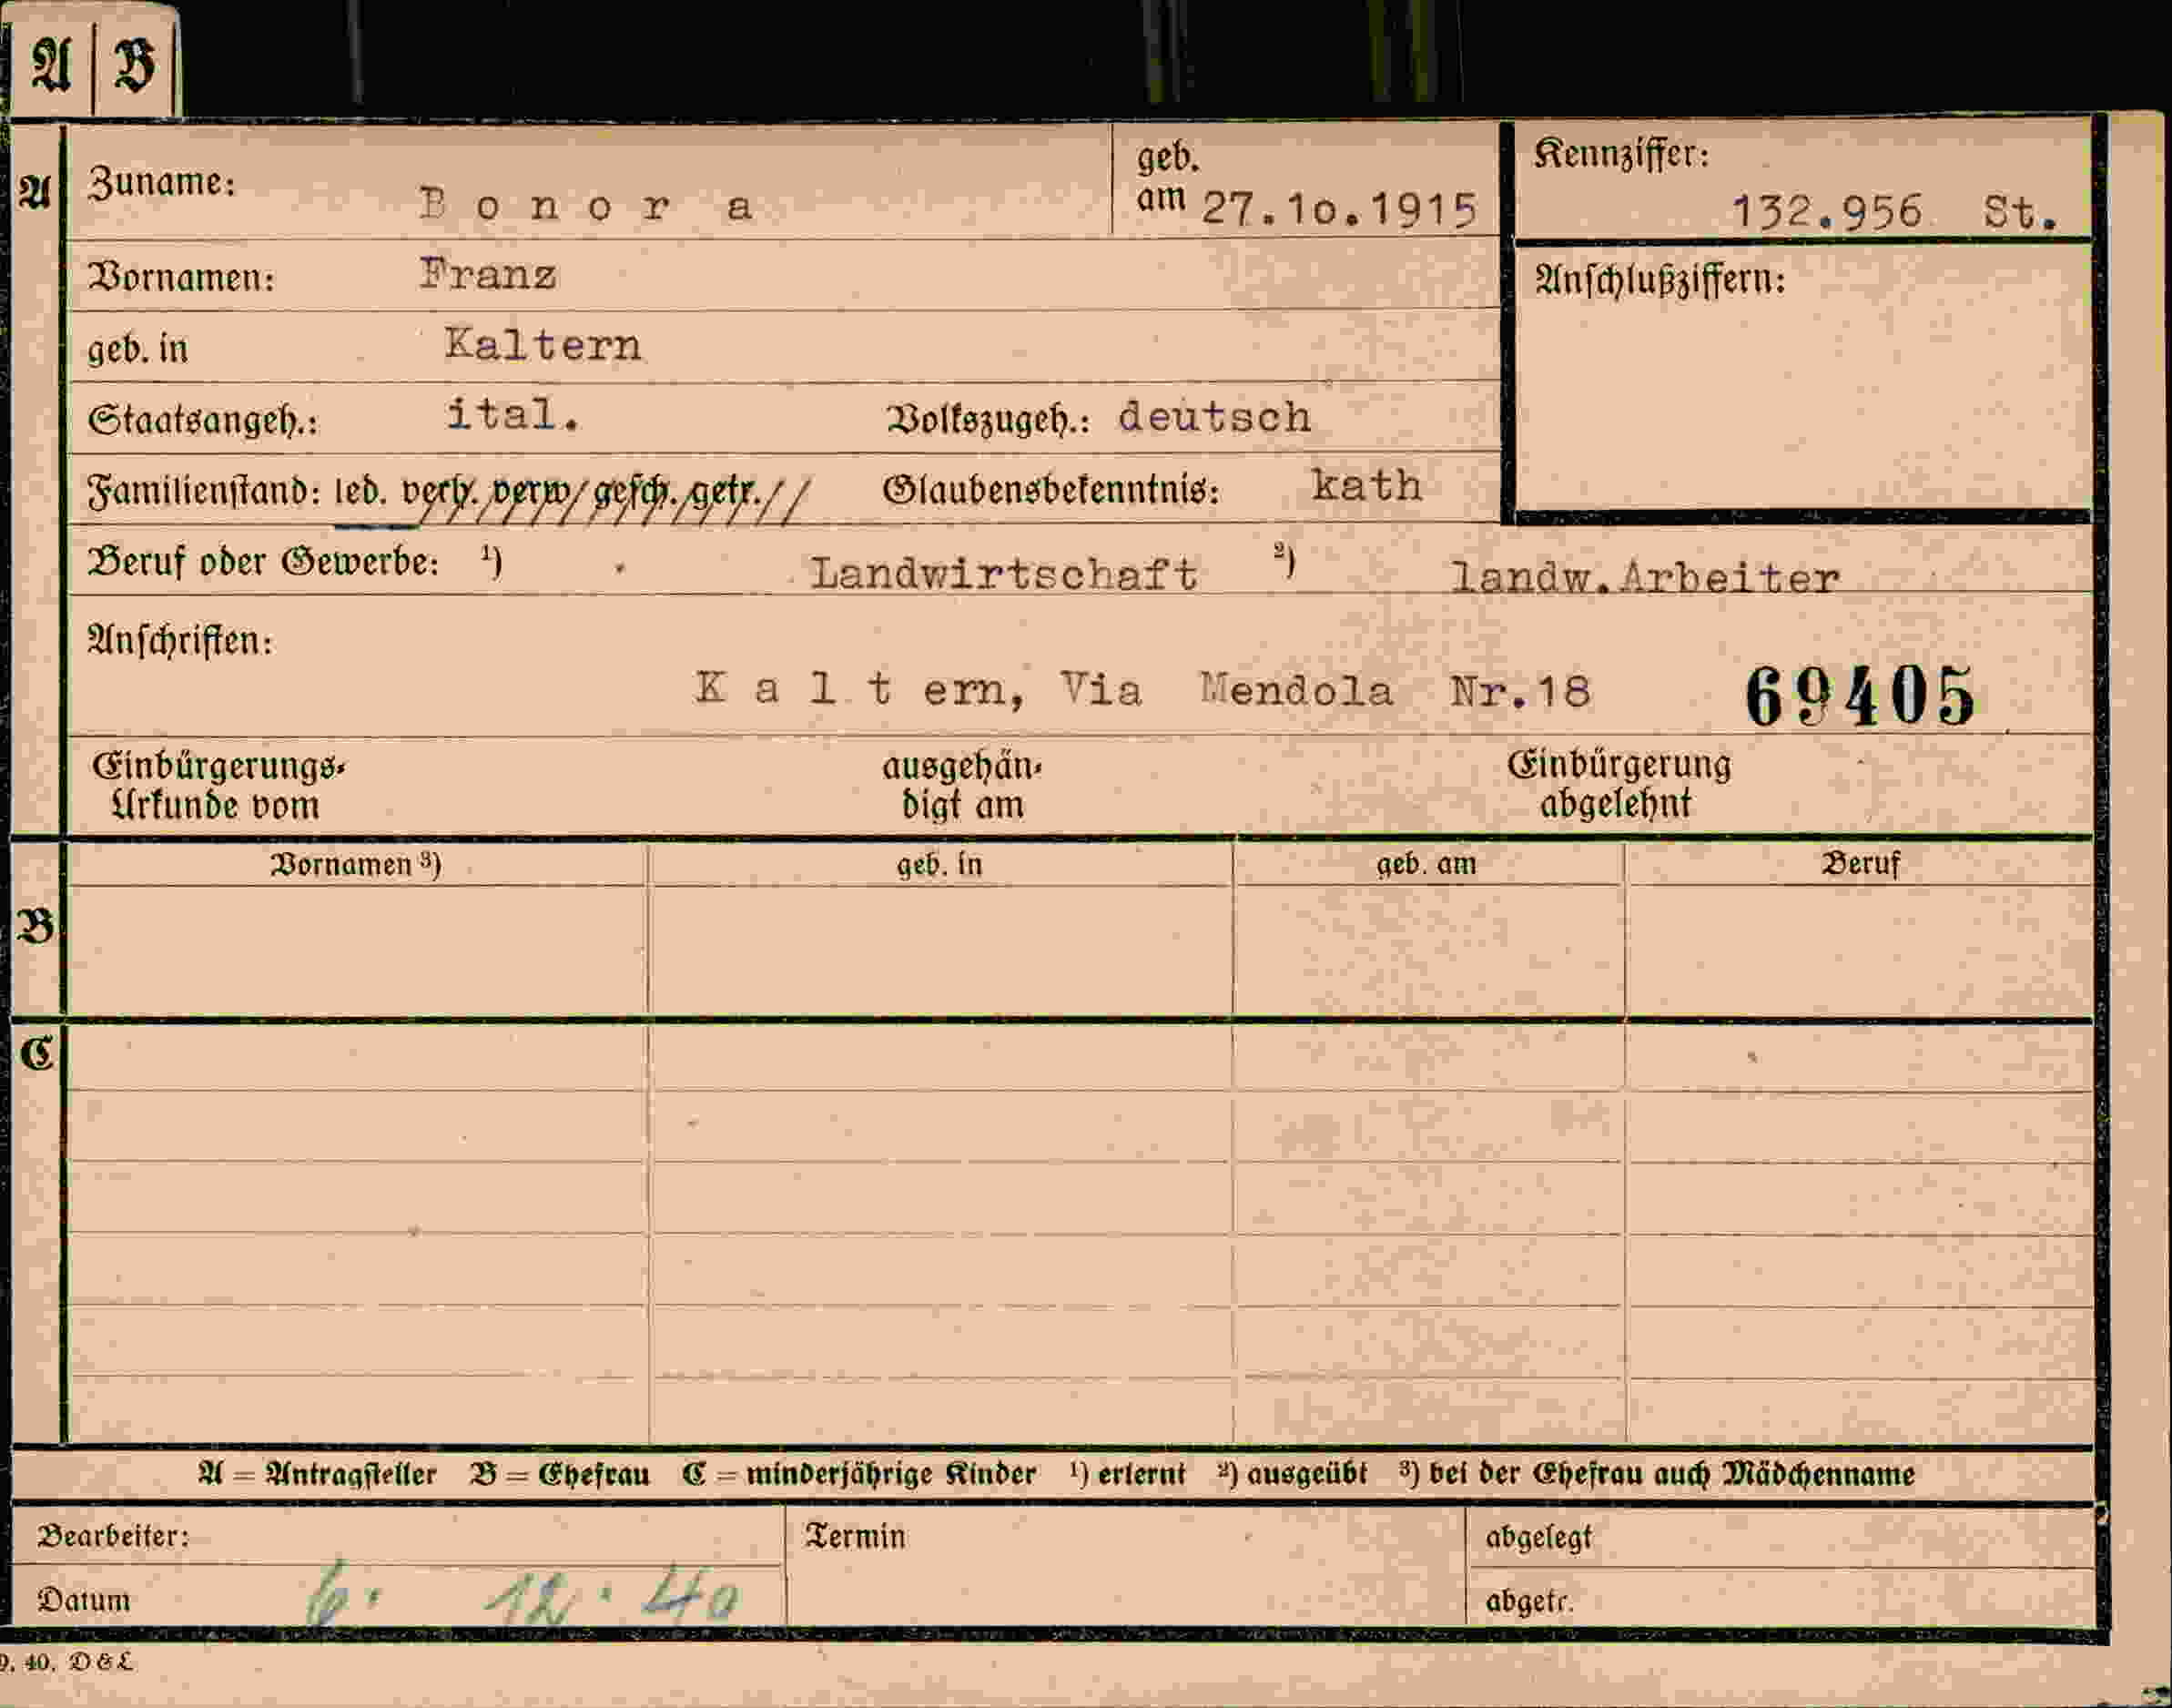 A | B
A
Zuname: B o n o r a
geb. am 27.10.1915
Kennziffer: 132.956 St.
Vornamen: Franz
Anschlußziffern:
geb. in Kaltern
Staatsangeh.: ital. Volkszugeh.: deutsch
Familienstand: led. verh. verw. gesch. getr. Glaubensbekenntnis: kath
Beruf oder Gewerbe: ¹) Landwirtschaft ²) landw.Arbeiter
Anschriften:
K a l t ern, Via Mendola Nr.18 69405
Einbürgerungs-
Urkunde vom
ausgehän-
digt am
Einbürgerung
abgelehnt
Vornamen ³) geb. in geb. am Beruf
B
C
A = Antragsteller B = Ehefrau C = minderjährige Kinder ¹) erlernt ²) ausgeübt ³) bei der Ehefrau auch Mädchenname
Bearbeiter: Termin abgelegt
Datum 6. 12. 40 abgetr.
9. 40. D & L